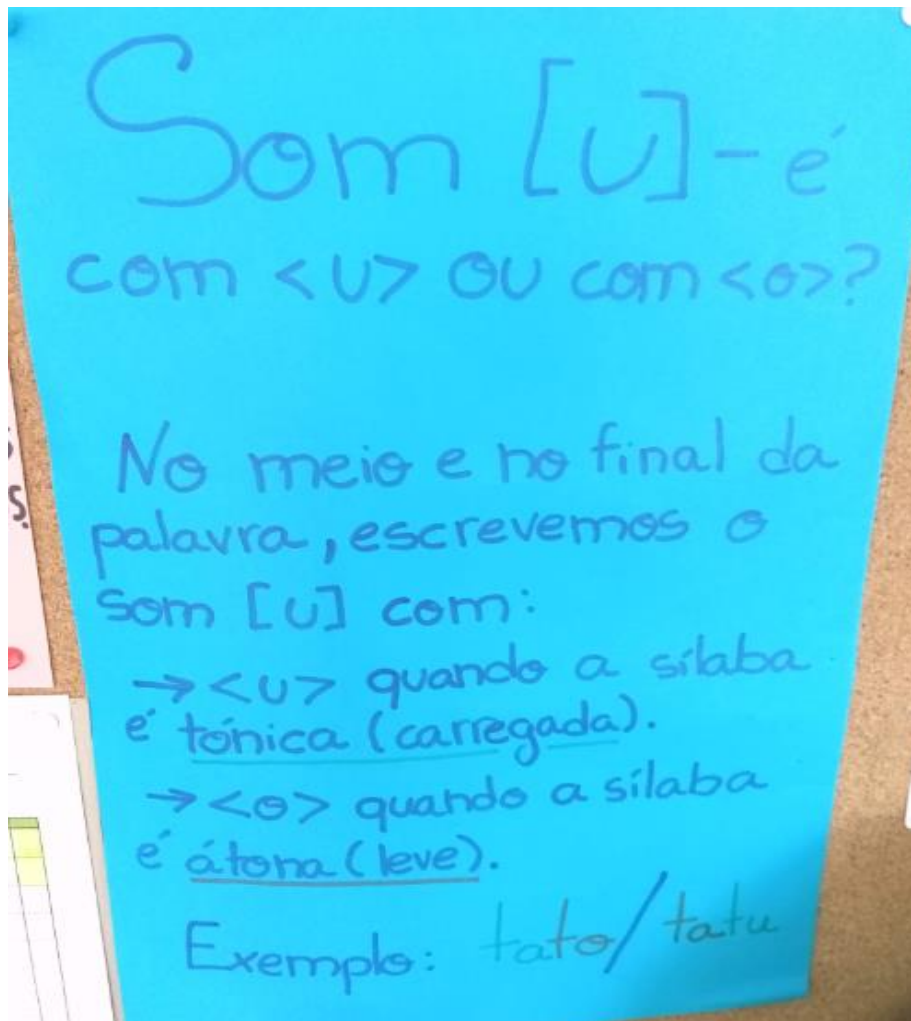 Som [U] - é
com <u> ou com <o>?
No meio e no final da
palavra, escrevemos o
som [U] com:
→ <u> quando a sílaba
é tónica (carregada).
→ <o> quando a sílaba
é átona (leve).
Exemplo: tato/tatu